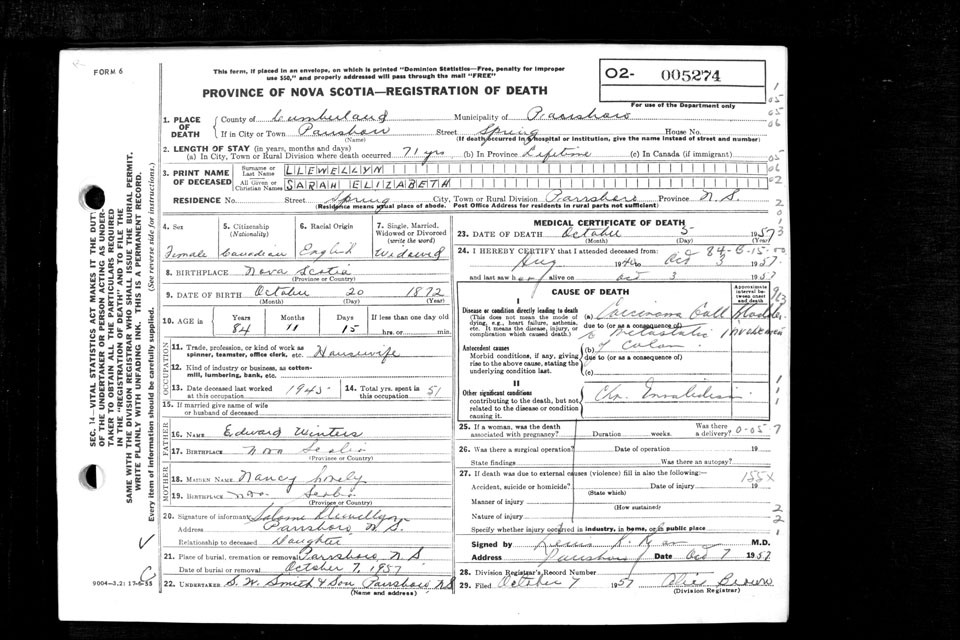 FORM 6
This form, if placed in an envelope, on which is printed "Dominion Statistics—Free, penalty for improper
use $50," and properly addressed will pass through the mail "FREE"
O2- 005274
PROVINCE OF NOVA SCOTIA—REGISTRATION OF DEATH
For use of the Department only
1. PLACE OF DEATH
County of Cumberland Municipality of Parrsboro
If in City or Town Parrsboro Street Spring House No.
(Name) (If death occurred in a hospital or institution, give the name instead of street and number)
2. LENGTH OF STAY (in years, months and days)
(a) In City, Town or Rural Division where death occurred 71 yrs (b) In Province Lifetime (c) In Canada (if immigrant)
3. PRINT NAME OF DECEASED
Surname or Last Name LLEWELLYN
All Given or Christian Names SARAH ELIZABETH
RESIDENCE No. Street Spring City, Town or Rural Division Parrsboro Province N.S.
(Residence means usual place of abode. Post Office Address for residents in rural parts not sufficient)
4. Sex 5. Citizenship (Nationality) 6. Racial Origin 7. Single, Married, Widowed or Divorced (write the word)
Female Canadian English Widowed
8. BIRTHPLACE Nova Scotia
(Province or Country)
9. DATE OF BIRTH October 20 1872
(Month) (Day) (Year)
10. AGE in Years Months Days If less than one day old
84 11 15 hrs. or min.
OCCUPATION
11. Trade, profession, or kind of work as spinner, teamster, office clerk, etc. Housewife
12. Kind of industry or business, as cotton-
mill, lumbering, bank, etc.
13. Date deceased last worked at this occupation 1945 14. Total yrs. spent in this occupation 51
15. If married give name of wife
or husband of deceased
FATHER
16. NAME Edward Winters
17. BIRTHPLACE Nova Scotia
(Province or Country)
MOTHER
18. MAIDEN NAME Nancy
19. BIRTHPLACE Nova Scotia
(Province or Country)
20. Signature of informant Llewellyn
Address Parrsboro, N.S.
Relationship to deceased Daughter
21. Place of burial, cremation or removal Parrsboro N S
Date of burial or removal October 7, 1957
22. UNDERTAKER S. W. Smith & Son Parrsboro, N.S
(Name and address)
9004—3.2: 17-6-55
MEDICAL CERTIFICATE OF DEATH
23. DATE OF DEATH October 5 1957
(Month) (Day) (Year)
24. I HEREBY CERTIFY that I attended deceased from:
Aug 19 to Oct 3 1957
and last saw her alive on Oct 3 1957
CAUSE OF DEATH
Approximate interval between onset and death
I
Disease or condition directly leading to death
(This does not mean the mode of dying, e.g., heart failure, asthenia, etc. It means the disease, injury, or complication which caused death.)
(a) Carcinoma Gall Bladder
due to (or as a consequence of)
Metastatic
Antecedent causes
Morbid conditions, if any, giving rise to the above cause, stating the underlying condition last.
(b) of Colon
due to (or as a consequence of)
(c)
II
Other significant conditions
contributing to the death, but not related to the disease or condition causing it.
Chr. Invalidism
25. If a woman, was the death associated with pregnancy? Duration weeks. Was there a delivery?
26. Was there a surgical operation? Date of operation 19
State findings Was there an autopsy?
27. If death was due to external causes (violence) fill in also the following:—
Accident, suicide or homicide? Date of injury 19
(State which)
Manner of injury
(How sustained)
Nature of injury
Specify whether injury occurred in industry, in home, or in public place
Signed by M.D.
Address Parrsboro Date Oct 7 1957
28. Division Registrar's Record Number
29. Filed October 7 1957 Alice Brown
(Division Registrar)
SEC. 14—VITAL STATISTICS ACT MAKES IT THE DUTY
OF THE UNDERTAKER OR PERSON ACTING AS UNDER-
TAKER TO OBTAIN ALL THE PARTICULARS REQUIRED
IN THE "REGISTRATION OF DEATH" AND TO FILE THE
SAME WITH THE DIVISION REGISTRAR WHO SHALL ISSUE THE BURIAL PERMIT.
WRITE PLAINLY WITH UNFADING INK. THIS IS A PERMANENT RECORD.
Every item of information should be carefully supplied. (See reverse side for instructions.)